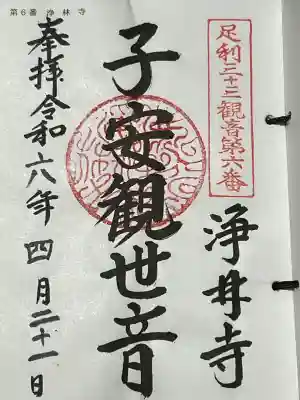 第6番 浄林寺
足利三十三観音第六番
浄林寺
子安観世音
奉拝令和六年四月二十一日